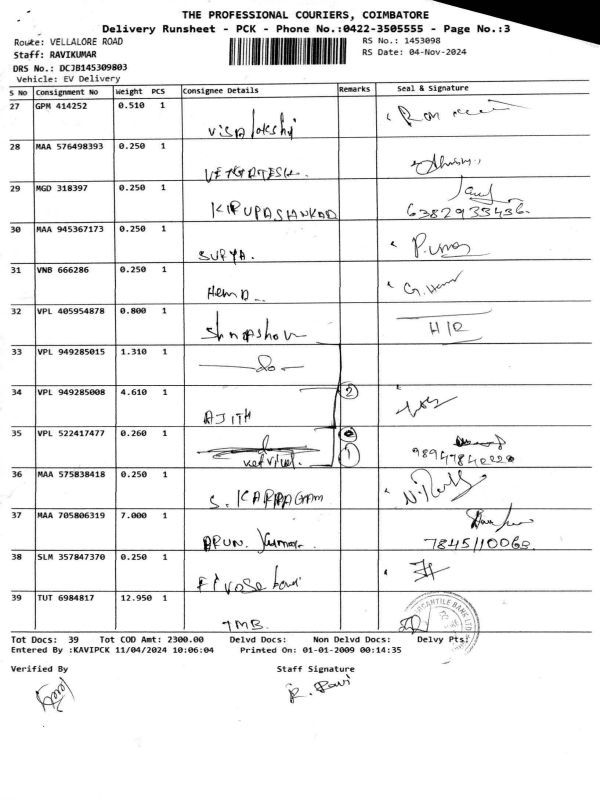 THE PROFESSIONAL COURIERS, COIMBATORE
Delivery Runsheet - PCK - Phone No.:0422-3505555 - Page No.:3
Route: VELLALORE ROAD
RS No.: 1453098
Staff: RAVIKUMAR
RS Date: 04-Nov-2024
DRS No.: DCJB145309803
Vehicle: EV Delivery
S No Consignment No Weight PCS Consignee Details Remarks Seal & Signature
27 GPM 414252 0.510 1
28 MAA 576498393 0.250 1
29 MGD 318397 0.250 1
KIRUPASHANKAR
6382933436.
30 MAA 945367173 0.250 1
SURYA.
31 VNB 666286 0.250 1
Hema
32 VPL 405954878 0.800 1
33 VPL 949285015 1.310 1
34 VPL 949285008 4.610 1
AJITH
2
35 VPL 522417477 0.260 1
1
36 MAA 575838418 0.250 1
37 MAA 705806319 7.000 1
ARUN. Kumar.
38 SLM 357847370 0.250 1
39 TUT 6984817 12.950 1
TMB.
Tot Docs: 39 Tot COD Amt: 2300.00 Delvd Docs: Non Delvd Docs: Delvy Pts:
Entered By :KAVIPCK 11/04/2024 10:06:04 Printed On: 01-01-2009 00:14:35
Verified By Staff Signature
R. Ravi